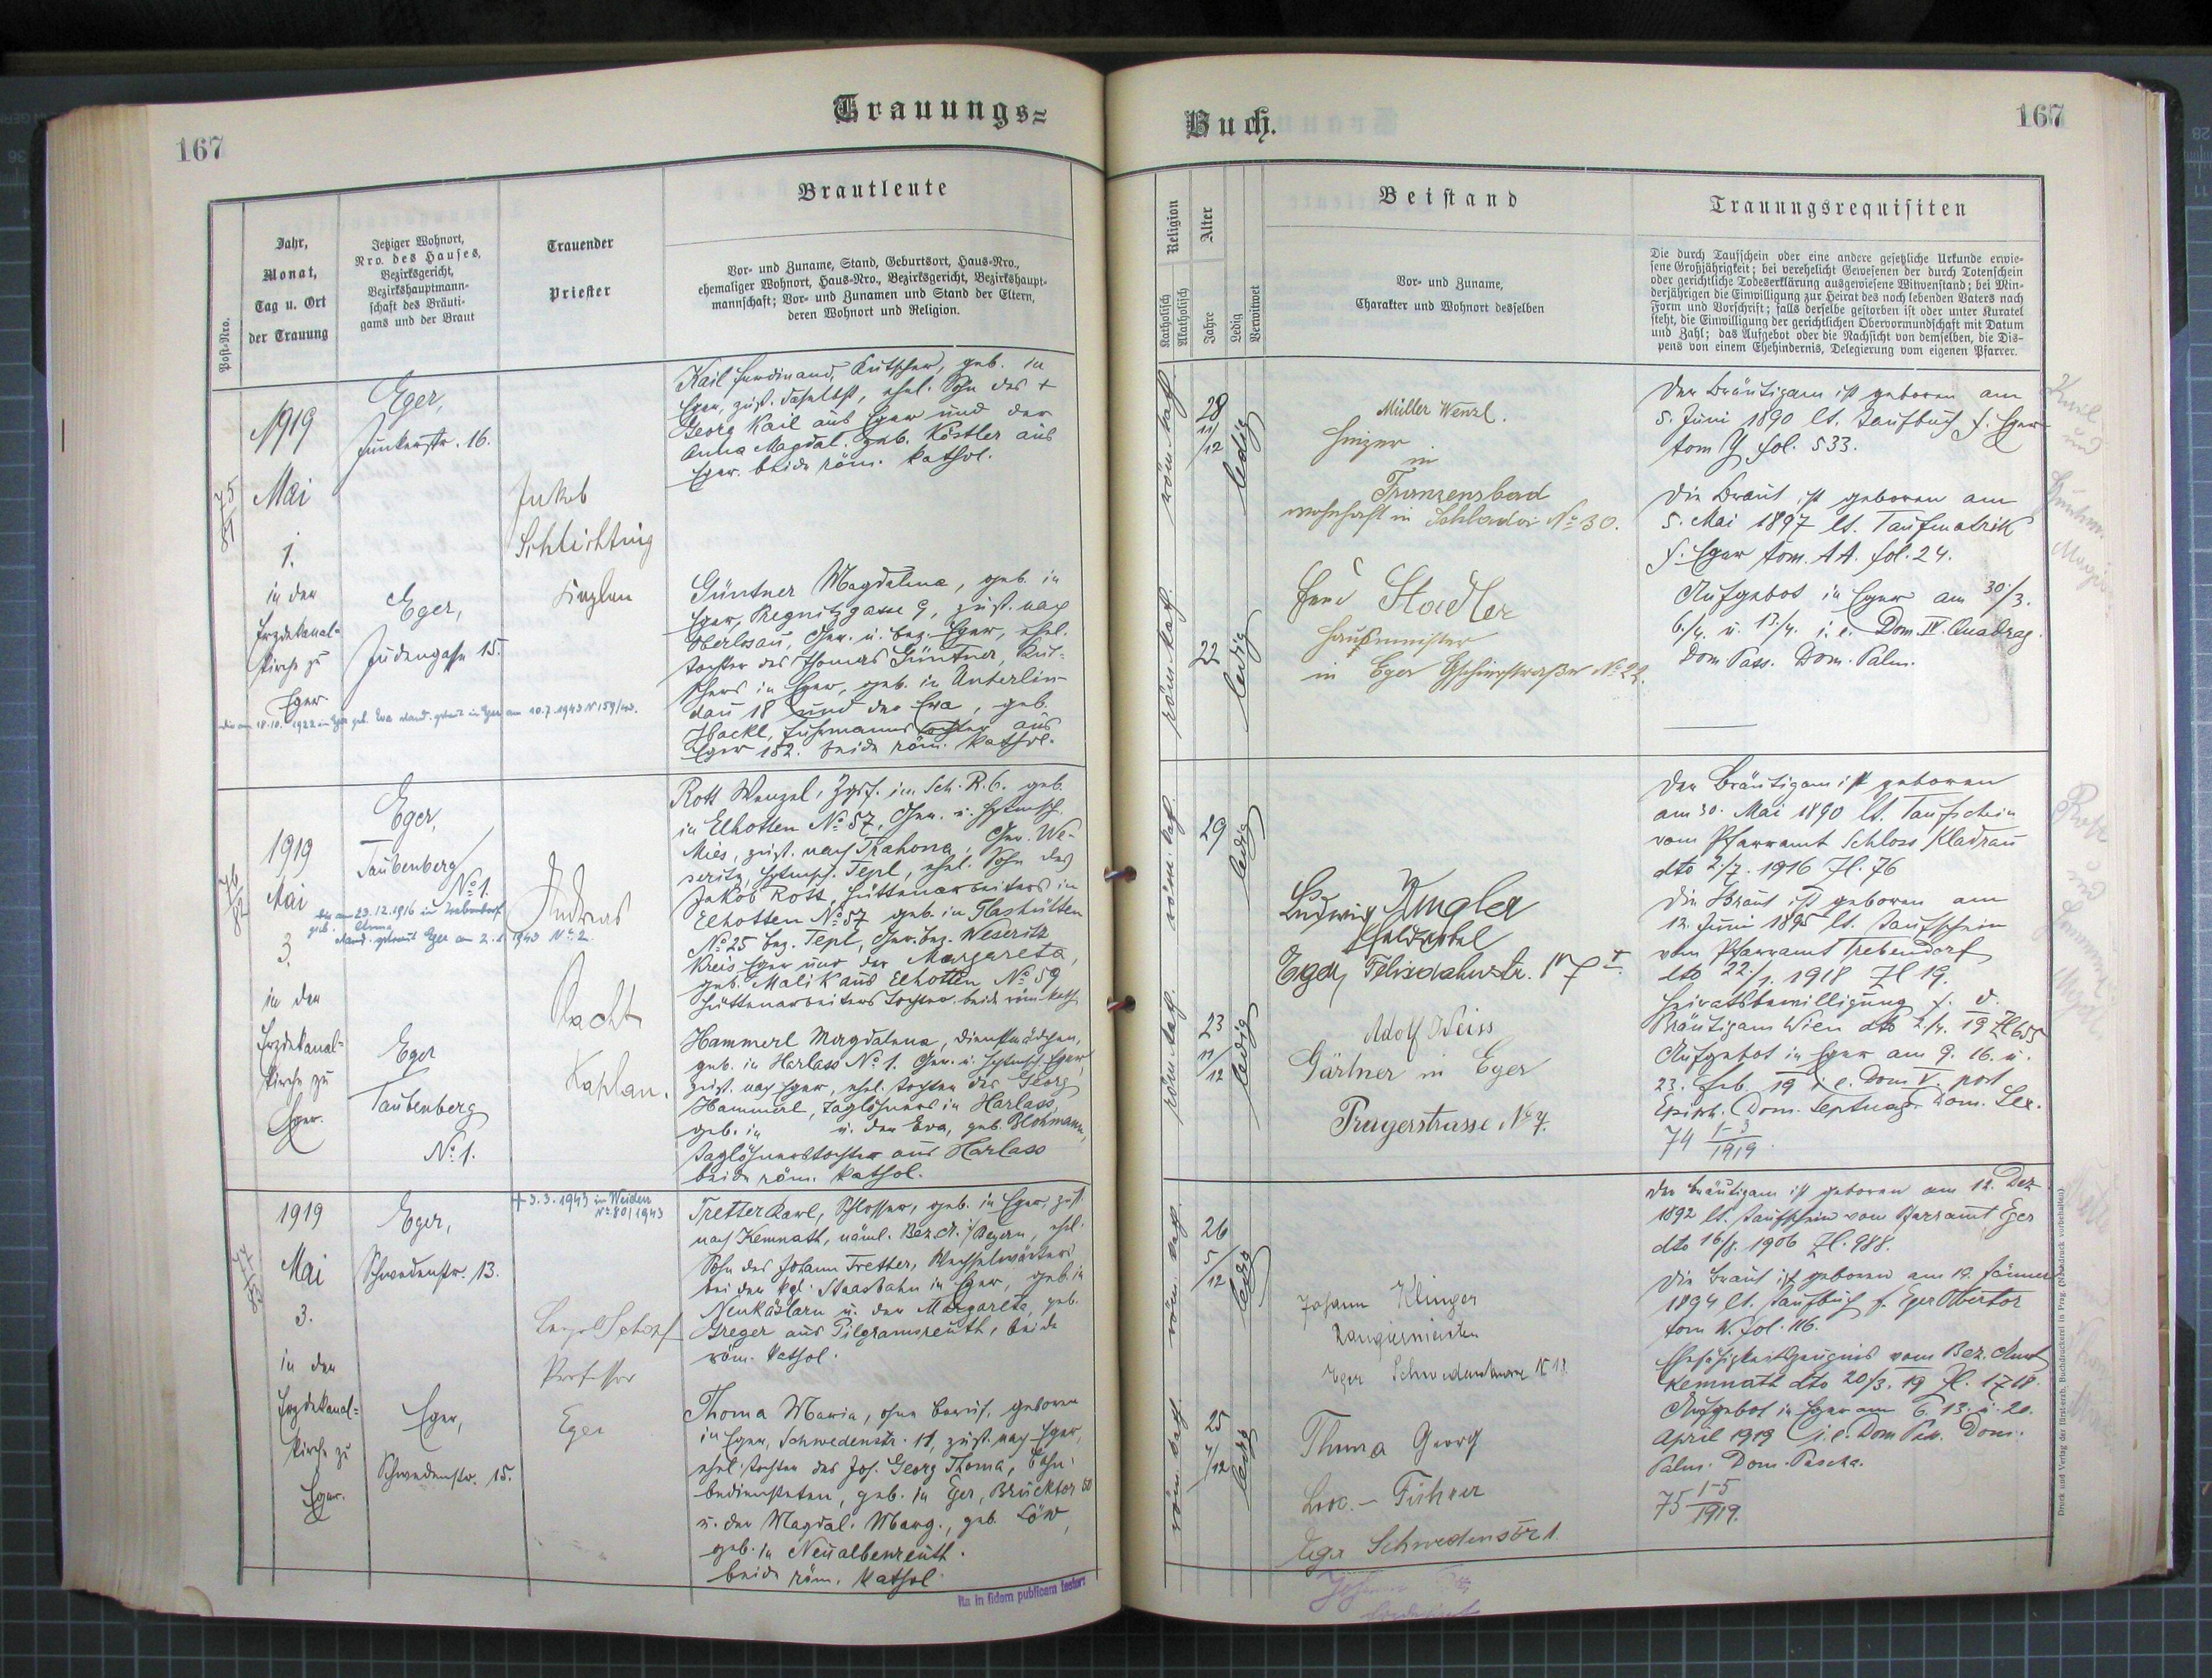 Trauungs=
Buch.
167
167
Post-Nro.
Jahr,
Monat,
Tag u. Ort
der Trauung
Jetziger Wohnort,
Nro. des Hauses,
Bezirksgericht,
Bezirkshauptmann-
schaft des Bräuti-
gams und der Braut
Trauender
Priester
Brautleute
Vor- und Zuname, Stand, Geburtsort, Haus-Nro.,
ehemaliger Wohnort, Haus-Nro., Bezirksgericht, Bezirkshaupt-
mannschaft; Vor- und Zunamen und Stand der Eltern,
deren Wohnort und Religion.
Religion
Katholisch
Akatholisch
Alter
Jahre
Ledig
Verwitwet
Beistand
Vor- und Zuname,
Charakter und Wohnort desselben
Trauungsrequisiten
Die durch Taufschein oder eine andere gesetzliche Urkunde erwie-
sene Großjährigkeit; bei verehelicht Gewesenen der durch Totenschein
oder gerichtliche Todeserklärung ausgewiesene Witwenstand; bei Min-
derjährigen die Einwilligung zur Heirat des noch lebenden Vaters nach
Form und Vorschrift; falls derselbe gestorben ist oder unter Kuratel
steht, die Einwilligung der gerichtlichen Obervormundschaft mit Datum
und Zahl; das Aufgebot oder die Nachsicht von demselben, die Dis-
pens von einem Ehehindernis, Delegierung vom eigenen Pfarrer.
75
81
1919
Mai
1.
in der
Erzdekanal-
kirche zu
Eger
Eger,
Junkerstr. 16.
Eger,
Judengasse 15.
Jakob
Schlichting
Kaplan
Kail Ferdinand, Kutscher, geb. in
Eger, zust. daselbst, ehel. Sohn des +
Georg Kail aus Eger und der
Anna Magdal. geb. Köstler aus
Eger. beide röm. kathol.
Güntner Magdalena, geb. in
Eger, Regnitzgasse 9, zust. nach
Oberlosau, Ger. u. bez. Eger, ehel.
Tochter des Thomas Güntner, Kut-
schers in Eger, geb. in Unterlin-
dau 18 und der Eva, geb.
Hackl, Fuhrmannstochter aus
Eger 182. beide röm. kathol.
die am 18.10.1922 in Eger geb. Eva stand. getraut in Eger am 10.7.1943 N 159/43.
röm. kath.
28
11/12
ledig
röm. kath.
22
ledig
Müller Wenzl.
in
Franzensbad
wohnhaft in Schlada No 30.
Ferd Stadler
Hausmeister
in Eger No 22.
Der Bräutigam ist geboren am
5. Juni 1890 lt. Taufbuch f. Eger
tom Y fol. 533.
Die Braut ist geboren am
5. Mai 1897 lt. Taufmatrik
f. Eger tom. AA. fol. 24.
Aufgebot in Eger am 30/3.
6./4. u. 13./4. i. e. Dom. IV. Quadrag.
Dom Pass. Dom. Palm.
76
82
1919
Mai
3.
in der
Erzdekanal-
kirche zu
Eger.
Eger,
Taubenberg
No 1.
Eger
Taubenberg
No 1.
Andreas
Kaplan.
Rott Wenzel, Zgsf. im Sch. R. 6. geb.
in Elhotten No 57, Ger. u. Hptmsch.
Mies, zust. nach Trahona, Ger. We-
seritz, Hptmsch. Tepl, ehel. Sohn des
Jakob Rott, Hüttenarbeiters in
Elhotten No 57 geb. in Glashütten
No 25 bez. Tepl, Ger. bez. Weseritz
Kreis Eger und der Margareta,
geb. Malik aus Elhotten No 59
Hüttenarbeiters Tochter. beide röm. kath.
Hammerl Magdalena, Dienstmädchen,
geb. in Harlass No 1. Ger. u. Hptmsch. Eger
zust. nach Eger, ehel. Tochter des Georg
Hammerl, Taglöhners in Harlass,
geb. in u. der Eva, geb. Blohmann,
Taglöhnerstochter aus Harlass
beide röm. kathol.
röm. kath.
29
ledig
röm. kath.
23
11/12
ledig
Ludwig Kugler
Feldwebel
Eger,
Adolf Weiss
Gärtner in Eger
Pragerstrasse No 7.
Der Bräutigam ist geboren
am 30. Mai 1890 lt. Taufschein
vom Pfarramt Schloss Kladrau
dto 2./7. 1916 Zl. 76
Die Braut ist geboren am
12. Juni 1895 lt. Taufschein
vom Pfarramt Trebendorf
dto 22./1. 1918 Zl 19.
Heiratsbewilligung f. d.
Bräutigam Wien dto 2./4. 19 Zl 655
Aufgebot in Eger am 9. 16. u.
23. Feb. 19 i. e. Dom V. post
Epiph. Dom. Septuag. Dom. Sex.
74 1-3
1919.
77
83
1919
Mai
3.
in der
Erzdekanal-
kirche zu
Eger.
Eger,
Schwedenstr. 13.
Eger,
Schwedenstr. 15.
+ 3.3.1943 in Weiden
No 80/1943
Leopold Schopf
Professor
Eger
Tretter Karl, Schlosser, geb. in Eger, zust.
nach Kemnath, näml. Bez. A. / Bayern, ehel.
Sohn des Johann Tretter, Wechselwärters
bei der kgl. Staatsbahn in Eger, geb. in
Neukäslarn u. der Margareta, geb.
Greger aus Pilgramsreuth, beide
röm. kathol.
Thoma Maria, ohne Beruf, geboren
in Eger, Schwedenstr. 11, zust. nach Eger,
ehel. Tochter des Joh. Georg Thoma, Bahn-
bediensteten, geb. in Eger, Brucktor 50
u. der Magdal. Marg., geb. Löw,
geb. in Neualbenreuth.
beide röm. kathol.
röm. kath.
26
5/12
ledig
röm. kath.
25
ledig
Johann Klinger
Rangiermeister
Eger
Thoma Georg
Eger Schwedenstr 1
Der Bräutigam ist geboren am 12. Dez
1892 lt. Taufschein vom Pfarramt Eger
dto 16/8. 1906 Zl. 988.
Die Braut ist geboren am 19. Jänner
1894 lt. Taufbuch f. Eger Obertor
tom W. fol. 116.
Ehefähigkeitszeugnis vom Bez. Amt
Kemnath dto 20/3. 19 Zl. 1718.
Aufgebot in Eger am 6. 13. u. 20.
April 1919 i. e. Dom Pass. Dom.
Palm. Dom. Pascha.
75 1-5
1919.
Ita in fidem publicam testor:
Druck und Verlag der fürst-erzb. Buchdruckerei in Prag. (Nachdruck vorbehalten)